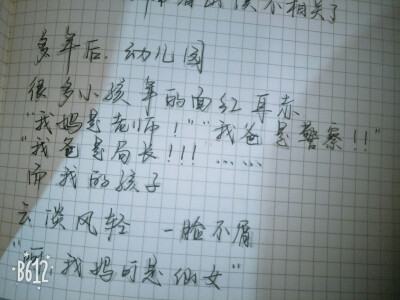 不相关了
多年后，幼儿园
很多小孩争的面红耳赤
"我妈是老师！""我爸是警察！！"
"我爸是局长！！！……
而我的孩子
云淡风轻 一脸不屑
我妈可是仙女"
B612